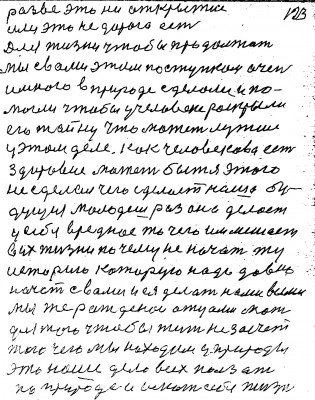 123
разве это ни открытие
или это не дорога ест
Для жизни чтобы продолжат
мы с вами этом поступком очен
много в природе сделали и по-
могли чтобы у человека раскрыли
его тайну что может лутше
у этом деле. Как человекова ест
здоровие может быт я этого
не сделаем чего сделает наша бу-
дущия молодеш раз она делает
у себя вредное то чего им мешает
в их жизни почему не начат ту
историю которую надо давно
начат с вами и ея делат нами всеми
мы же рождение
для того чтобы тит не
того чего мы находим у природы
это наше дело в их ползат
по природе и искат себе жизн